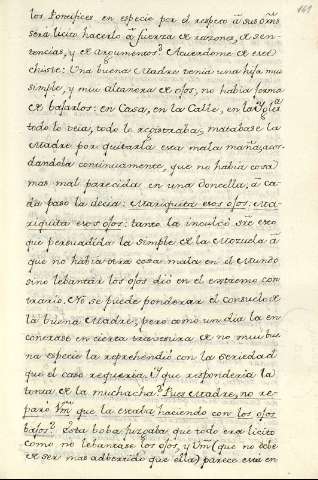 161
los Pontifices en especie por el respeto á sus
será licito hacerlo á fuerza de razones, de sen-
tencias, y de argumentos? Acuerdome de ese
chiste: Una buena Madre tenia una hija mui
simple, y mui altanera de ojos, no habia forma
de bajarlos: en Casa, en la Calle, en la Yglesia
todo lo veia, todo lo registraba; matabase la
Madre por quitarla esta mala maña; acor-
dandola continuamente, que no habia cosa
mas mal parecida en una doncella, á ca-
da paso la decia: Mariquita esos ojos: Ma-
riquita esos ojos: tanto la inculcó sre eso
que persuadida la simple de la Mozuela á
que no habia otra cosa mala en el Mundo
sino lebantar los ojos dió en el extremo con-
trario. No se puede ponderar el consuelo de
la buena Madre; pero como un dia la en-
contrase en cierta travesura de no mui bue-
na especie la reprehendió con la seriedad
que el caso requeria. Y que responderia la
tonta de la muchacha? Pues Madre, no re-
paró Vm que la estaba haciendo con los ojos
bajos? Esta boba juzgaba que todo era licito
como no lebantase los ojos, y Vm (que no debe
de ser mas adbertido que ella) parece está en